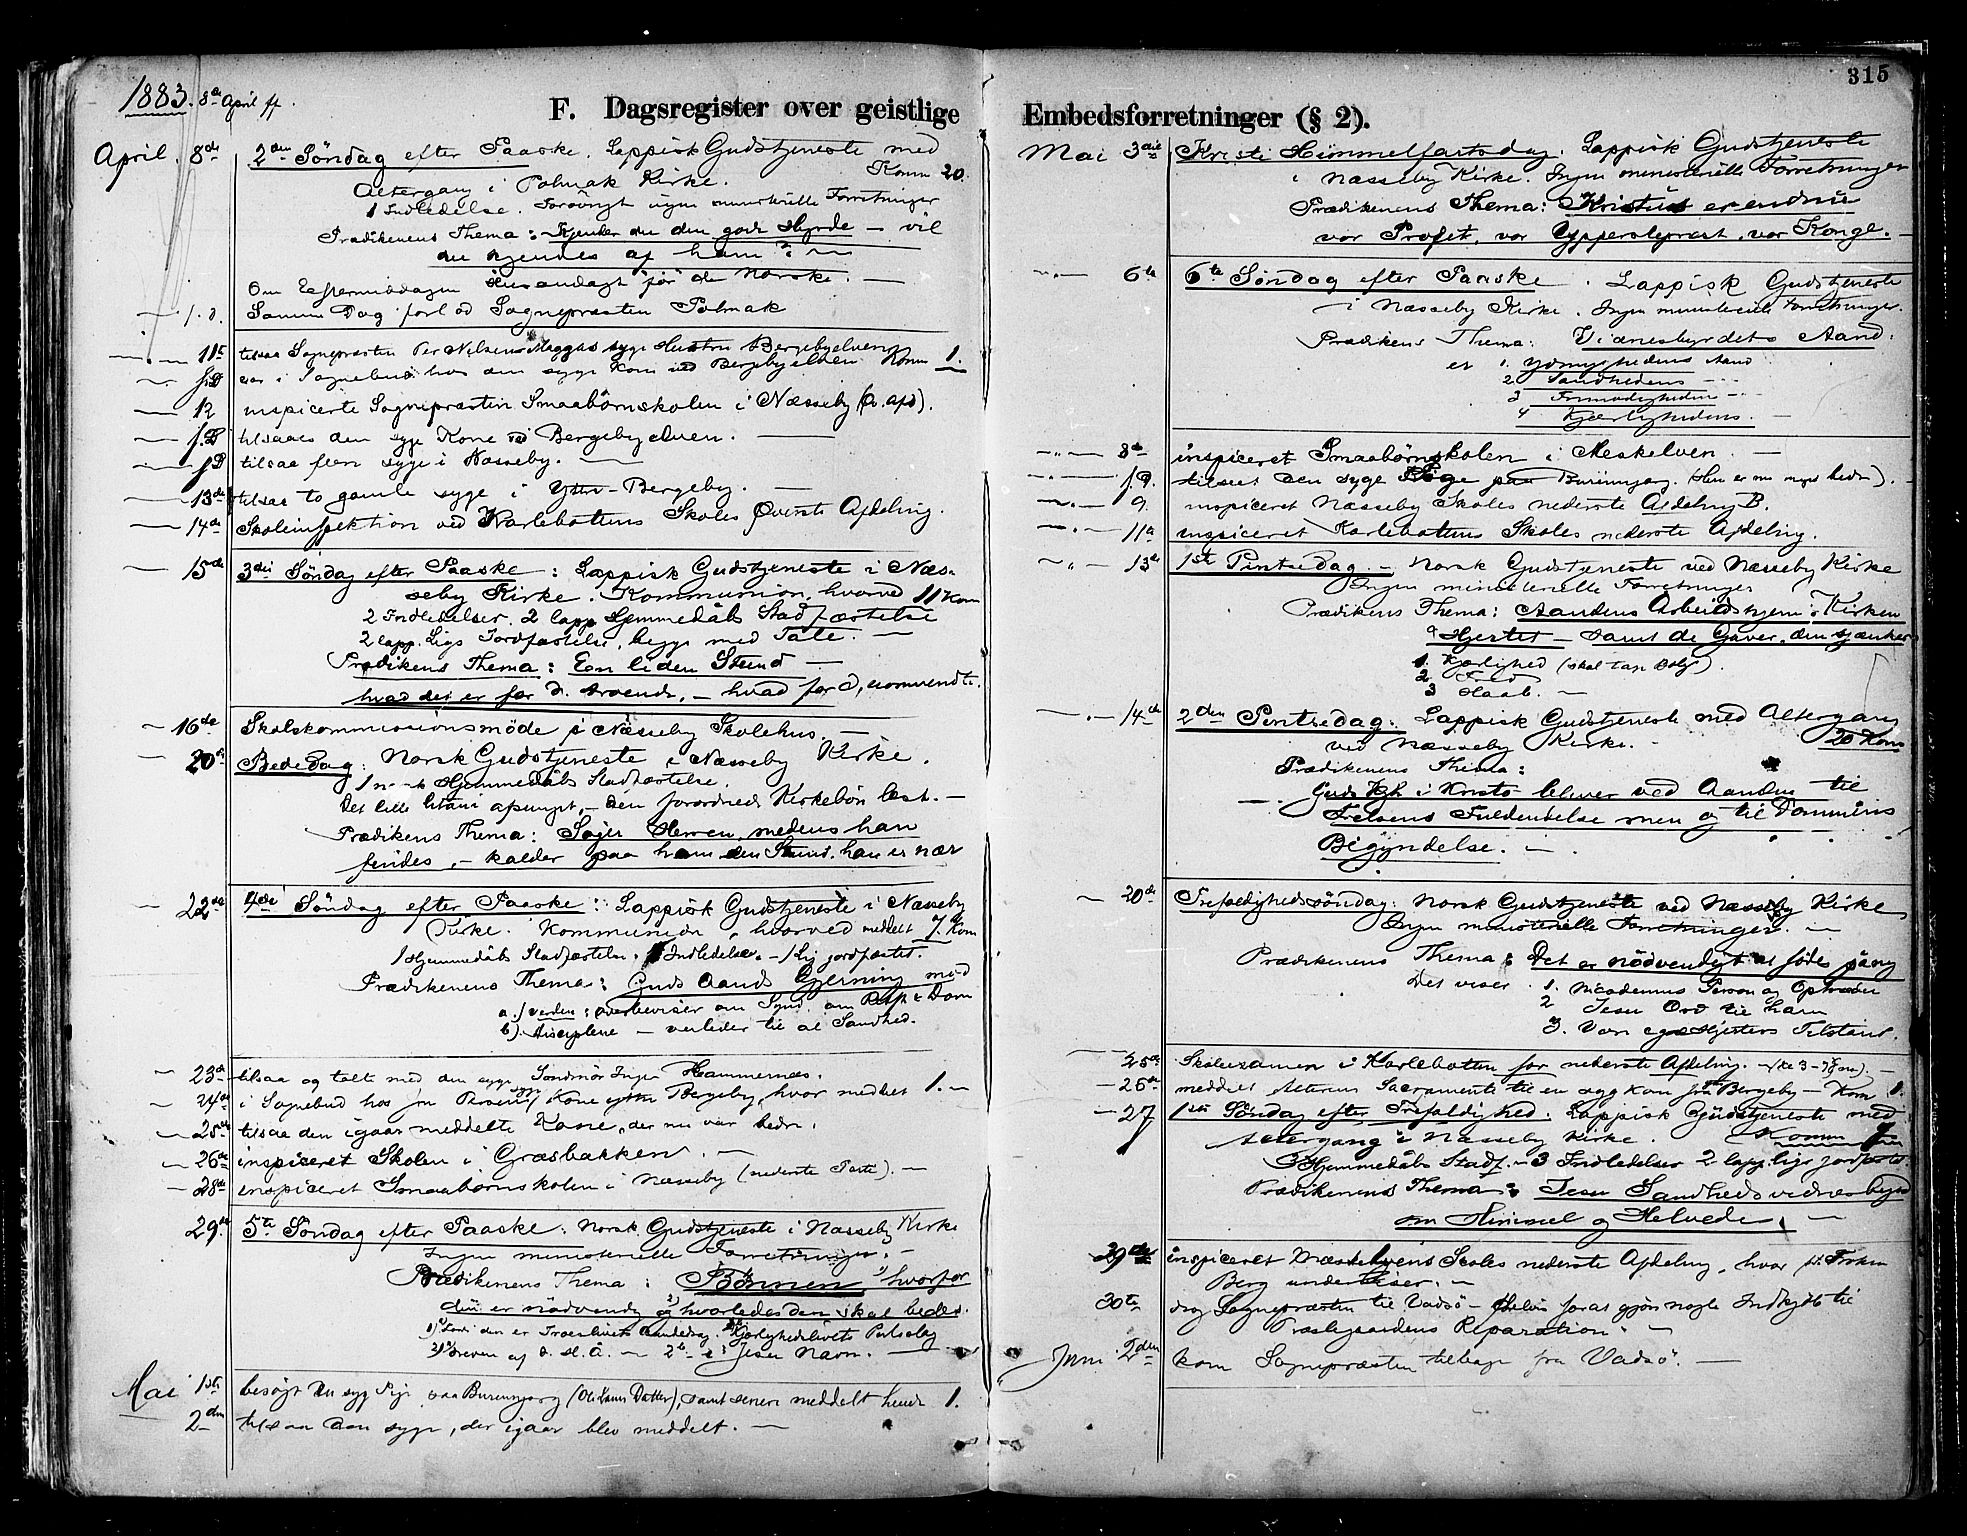 1883. 8de April ff.
F. Dagsregister over geistlige
April. 8de 2den Søndag efter Paaske. Lappisk Gudstjeneste med
Altergang i Polmak Kirke. Komm 20.
1 Indledelse. Forøvrigt ingen ministerielle Forretninger
Prædikenens Thema: Kjender du den gode Hyrde – vil
du kjendes af ham? –
Om Eftermiddagen Husandagt for de Norske. –
– f. D. Samme Dag forlod Sognepræsten Polmak
– 11te tilsaa Sognepræsten Per Nilsens Maggas syge Hustru Bergebyelven
– f. D var i Sognebud hos den syge Kone ved Bergebyelven Komm 1.
– 12 inspicerte Sognepræsten Smaabørnskolen i Næsseby (ø. afd).
– f. D tilsaaes den syge Kone ved Bergebyelven. –
– f D tilsaa flere syge i Næsseby. –
– 13de tilsaa to gamle syge i Ytre-Bergeby. –
– 14de Skoleinspektion ved Karlebotens Skoles Øverste Afdeling.
– 15de 3die Søndag efter Paaske: Lappisk Gudstjeneste i Næs-
seby Kirke. Kommunion, hvorved 11 Kom
2 Indledelser. 2 lapp Hjemmedåb Stadfæstelse
2 lapp. Ligs Jordfæstelse, begge med Tale. –
Prædikens Thema: En liden Stund –
hvad det er for d. troende, – hvad for d, uomvendte.
– 16de Skolekommissionsmöde i Næsseby Skolehus. –
– 20de Bededag: Norsk Gudstjeneste i Næsseby Kirke.
1 norsk Hjemmedåbs Stadfæstelse.
Det lille Litani afsunget, – den forordnede Kirkebön læst. –
Prædikens Thema: Søger Herren, medens han
findes, – kalder paa ham den Stund, han er nær
– 22de 4de Søndag efter Paaske: Lappisk Gudstjeneste i Næsseby
Kirke. Kommunion, hvorved meddelt 7. Kom
1 Hjemmedåb Stadfæstelse. Indledelse. – 1 Lig jordfæstet.
Prædikenens Thema: Guds Aands Gjerning med
a.) verden: overbeviser om Synd, om Retf. & Dom
b). Disciplene – veileder til al Sandhed.
– 23de tilsaa og talte med den syge Inger Hammernes.
– 24de i Sognebud hos syg Kone ytre Bergeby, hvor meddelt 1. –
– 25de tilsaa den igaar meddelte Kone, der nu var bedre.
– 26de inspiceret Skolen i Græsbakken. –
– 28de inspiceret Smaabørnskolen i Næsseby (nederste Parti). –
29de 5te Søndag efter Paaske: Norsk Gudstjeneste i Næsseby Kirke
Ingen ministerielle Forretninger. –
Prædikenens Thema: Bönnen 1) hvorfor
den er nödvendig og 2) hvorledes den skal bedes.
1) Fordi den er Troeslivets Aandedrag. Kjærlighedslivets Pulsslag
2) Dreven af d. H. Å. – i Jesu Navn. –
Mai 1ste besögt den syge Pige paa Burennjarg (Ole Datter), samt senere meddelt hende 1.
2den tilsaa den syge, der igaar blev meddelt. –
315
Embedsforretninger (§ 2).
Mai 3die Kristi Himmelfartsdag. Lappisk Gudstjeneste
i Næsseby Kirke. Ingen ministerielle Forretninger
Prædikenens Thema: Kristus er endnu
vor Profet, vor Ypperstepræst, vor Konge. –
6te 6te Søndag efter Paaske. Lappisk Gudstjeneste
i Næsseby Kirke. Ingen ministerielle Forretninger.
Prædikens Thema: Vidnesbyrdets Aand:
er 1. Ydmyghedens Aand
2 Sandhedens –
3 Frimodigheden –
4 Kjærlighedens. –
8de inspiceret Smaabørnskolen i Meskelven. –
f. D. tilseet den syge Pige paa Burennjarg. (Hun er nu meget bedre). –
9. inspiceret Næsseby Skoles nederste Afdeling B.
11te inspiceret Karlebotens Skoles nederste Afdeling.
13de 1ste Pintsedag. – Norsk Gudstjeneste ved Næsseby Kirke
Ingen ministerielle Forretninger
Prædikens Thema: Aandens Arbeidshjem: Kirken
& Hjertet – samt de Gaver, den skjænker
1. Kjærlighed
2. Fred
3 Haab. –
14de 2den Pintsedag: Lappisk Gudstjeneste med Altergang
ved Næsseby Kirke. – 20 Kom
Prædikenens Thema:
Guds Kjh i Kristo bliver ved Aanden til
Frelsens Fuldendelse men og til Dommens
Begyndelse. –
– 20de Trefoldighedssøndag: Norsk Gudstjeneste ved Næsseby Kirke
Ingen ministerielle Forretninger. –
Prædikenens Thema: Det er nödvendigt at födes påny
Det viser: 1. Nicodemus Person og Optræden
2 Jesu Ord til ham
3. Vore egne Hjerters Tilstand.
– 25de Skoleexamen i Karleboten for nederste Afdeling. –
– 26de meddelt Alterens Sacramente til en syg Kone fra Bergeby – Kom 1.
– 27 1ste Søndag efter Trefoldighed: Lappisk Gudstjeneste med
Altergang i Næsseby Kirke. Komm 7
Hjemmedåbs Stadf. – 3 Indledelser 2 lapp. lige jordfæsted.
Prædikenens Thema: Jesu Sandheds vidnesbyrd
om Himmel og Helvede. –
29de inspiceret Skoles nederste Afdeling, hvor Fröken
Berg underviser. –
30te drog Sognepræsten til Vadsö – for at gjöre nogle Indkjöb til
Præstegaardens Reparation. –
Juni 2den kom Sognepræsten tilbage fra Vadsö. –